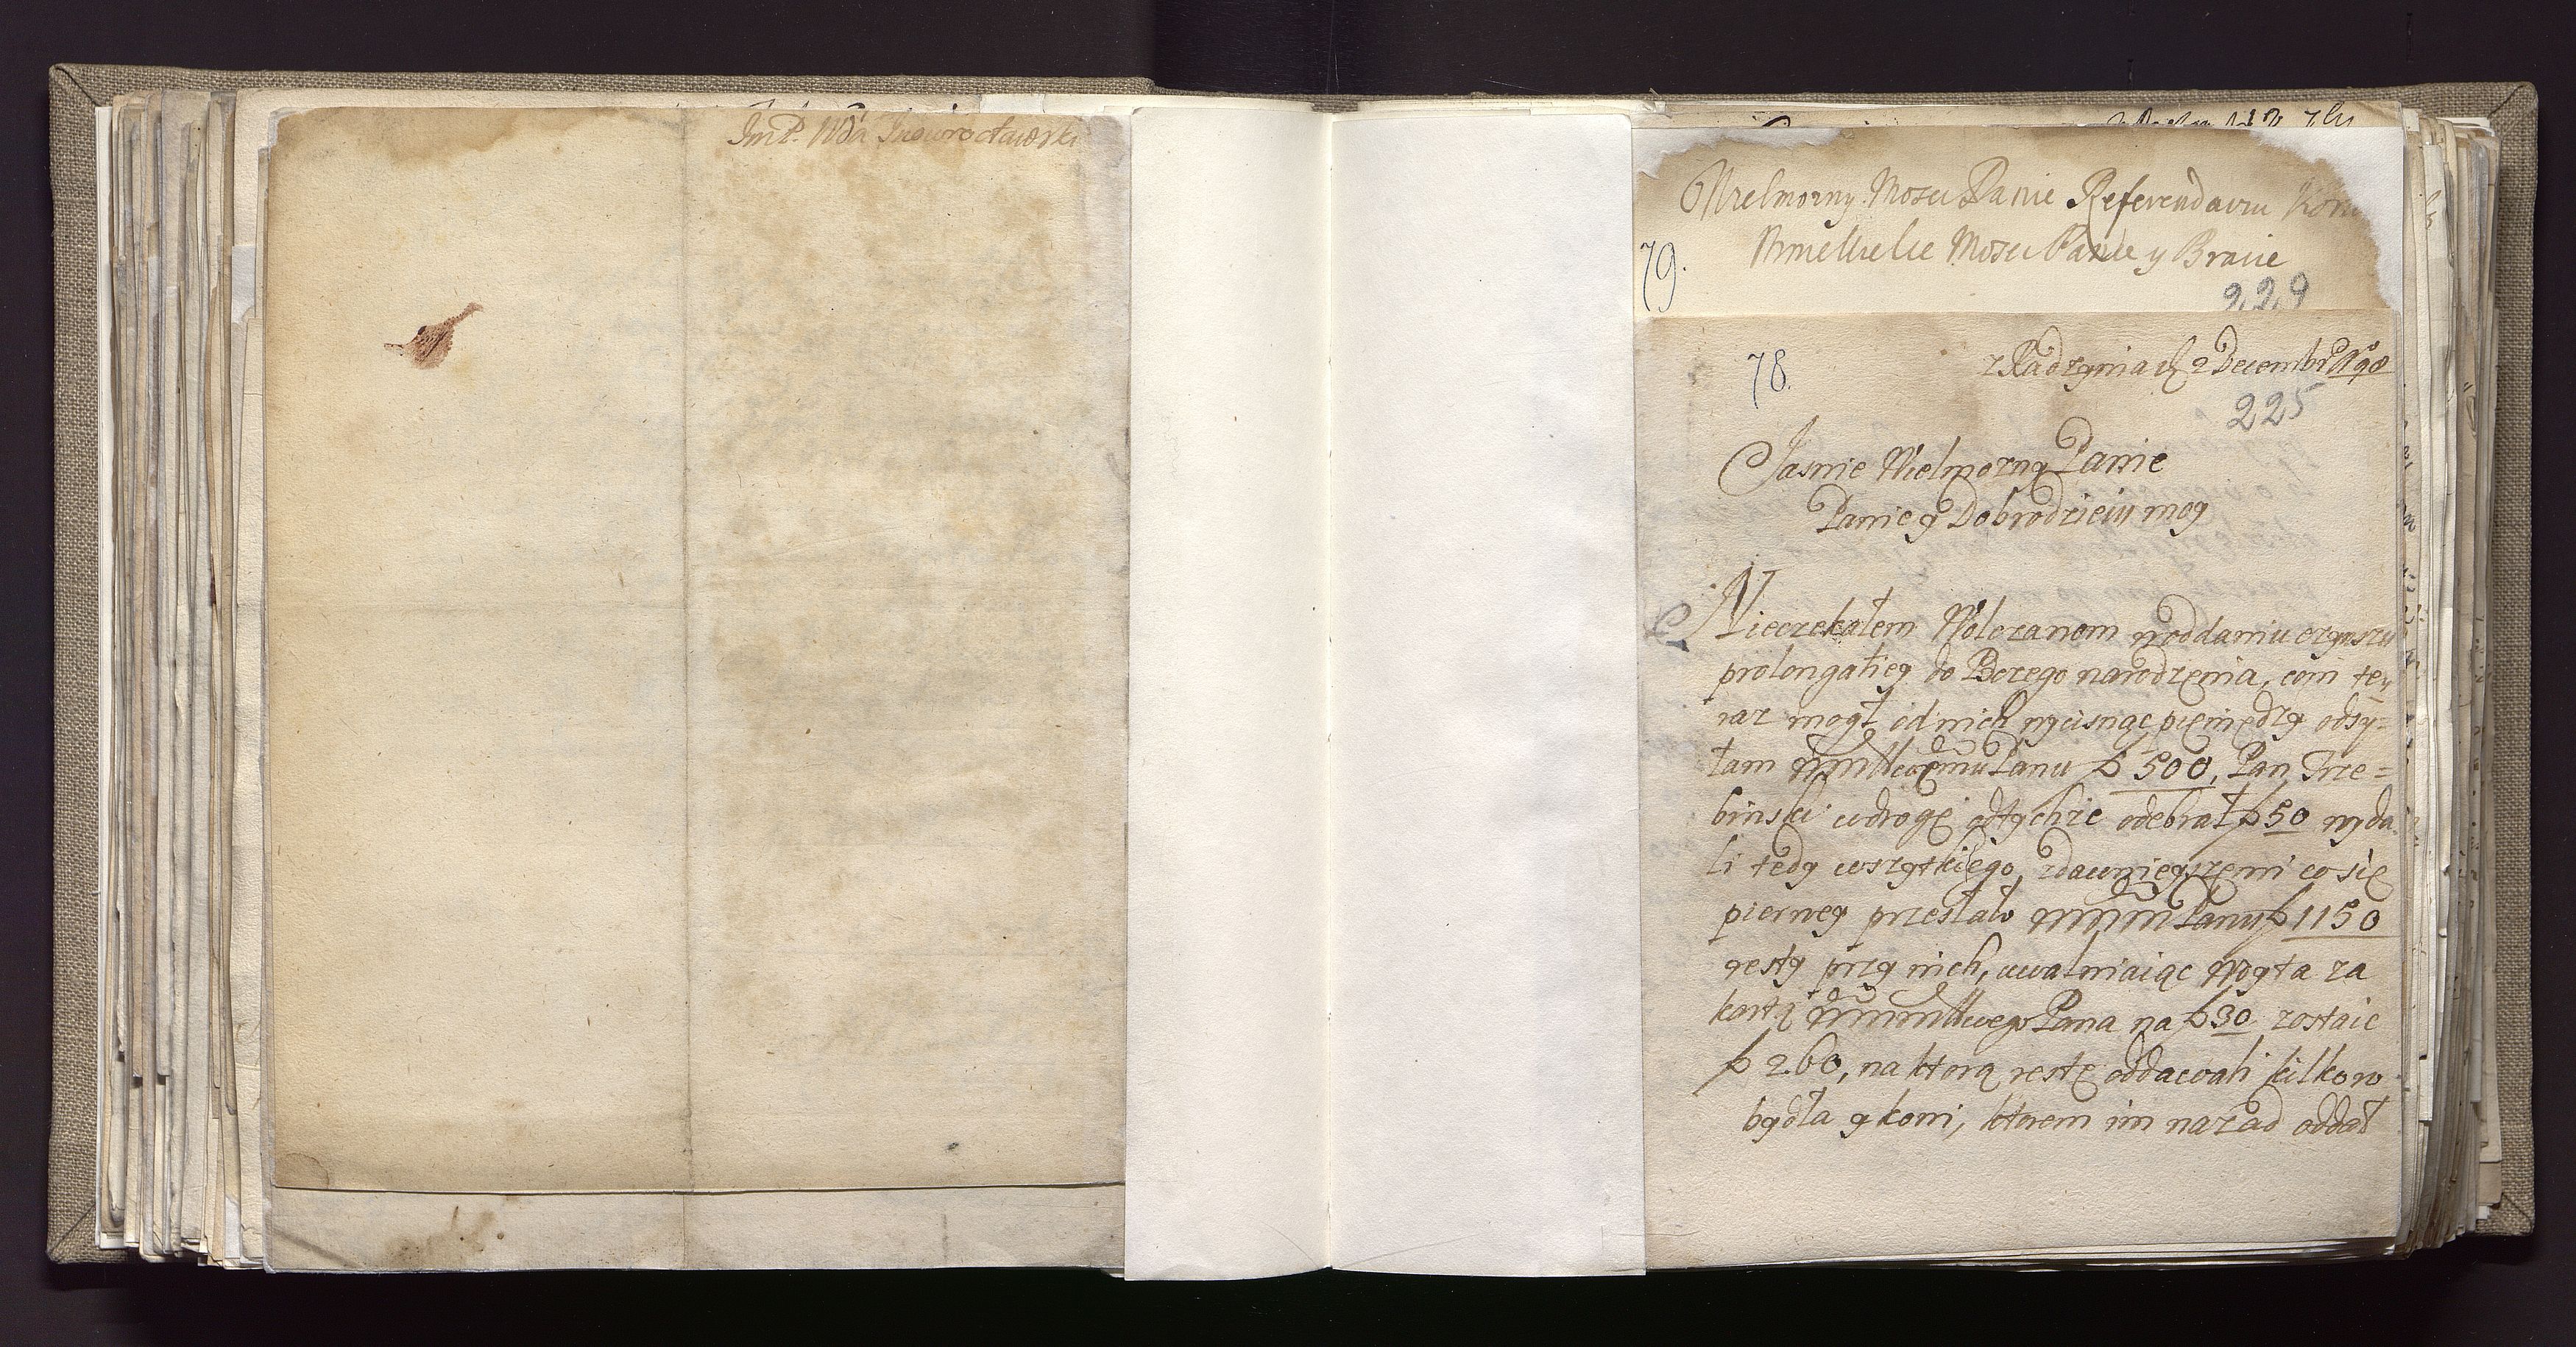 Im P. Wda Inowrocławski
Wielmozny Mosci Panie Referendarzu Koro
Mosci Panie y Bracie
79.
229
z Radzynia d 2 Decembr A° 90
78.
225
Jasnie Wielmozny Panie
Panie y Dobrodzieiu moy
Nieczekałem Wolczanom w oddaniu czynszu
prolongatiey do Bozego narodzenia, com te
raz mogł od nich wycisnąc pięniędzy odsy=
łam Panu f 500, Pan Trze=
binski w drogę odtychze odebrał f 50 wyda
li tedy wszytkiego, zdawnieyszemi co się
pierwey przesłało Panu f 1150
resty przy nich, uwalniaiąc Woyta za
kartą Pana na f 30 zostaie
f 260, na ktorą restę oddawali kilkoro
bydła y koni, ktorem im nazad oddał